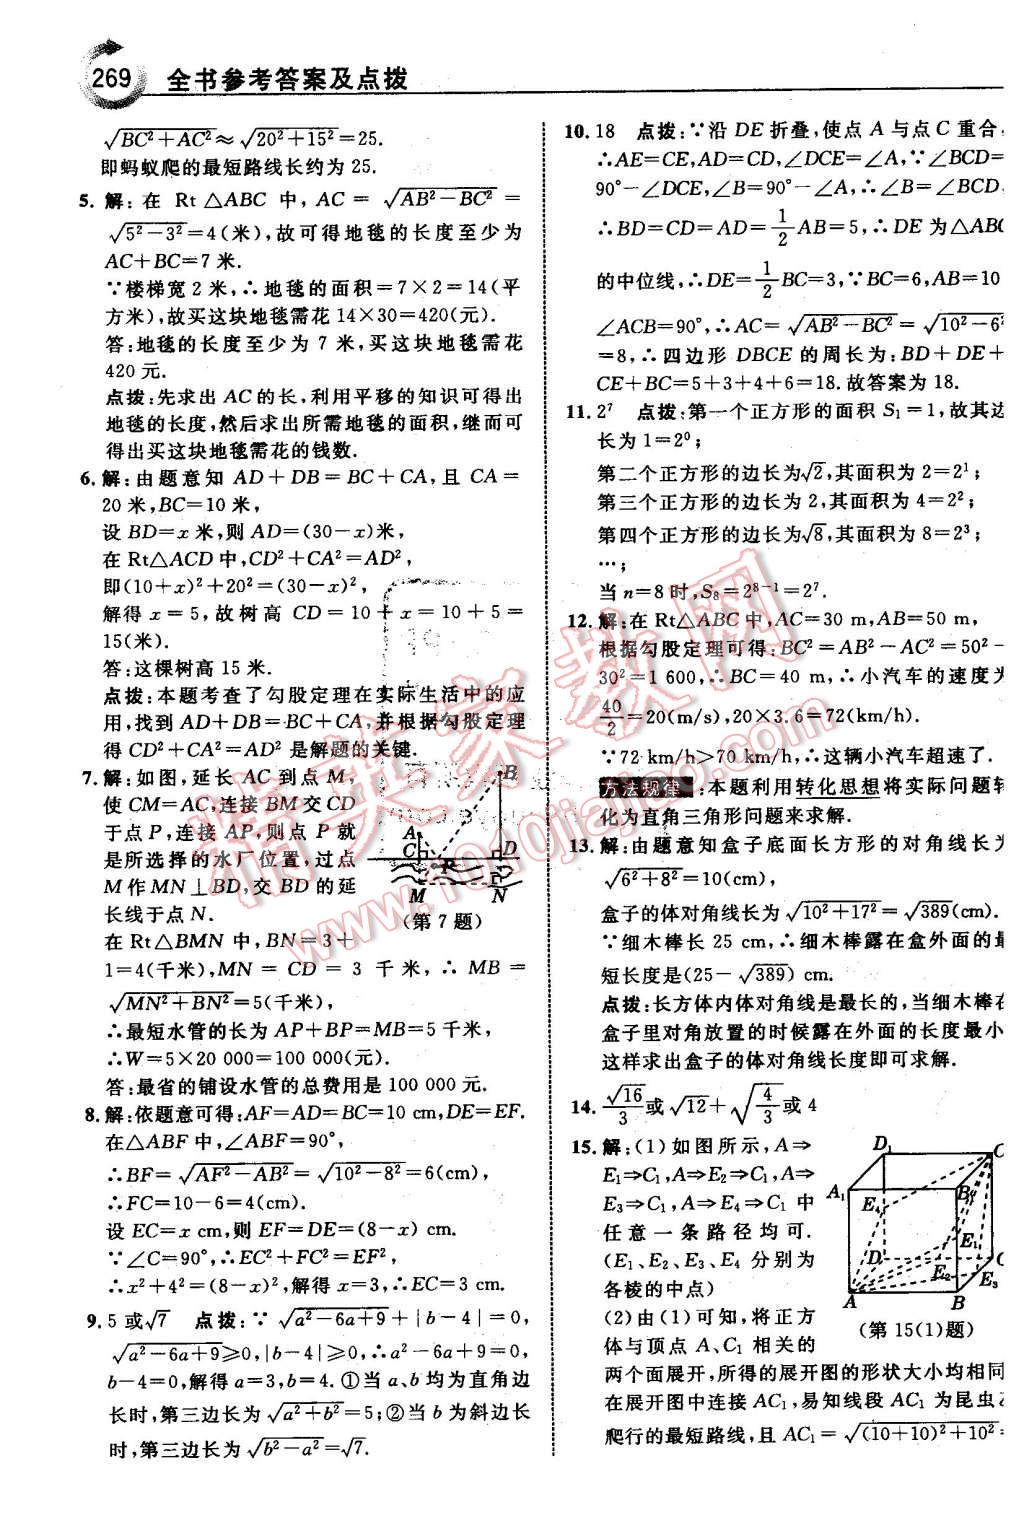 269 全书参考答案及点拨
√(BC²+AC²)≈√(20²+15²)=25.
即蚂蚁爬的最短路线长约为 25.
5. 解:在 Rt△ABC 中, AC=√(AB²-BC²)=
√(5²-3²)=4(米),故可得地毯的长度至少为
AC+BC=7 米.
∵楼梯宽 2 米,∴地毯的面积=7×2=14(平
方米),故买这块地毯需花 14×30=420(元).
答:地毯的长度至少为 7 米,买这块地毯需花
420 元.
点拨:先求出 AC 的长,利用平移的知识可得出
地毯的长度,然后求出所需地毯的面积,继而可
得出买这块地毯需花的钱数.
6. 解:由题意知 AD+DB=BC+CA,且 CA=
20 米,BC=10 米,
设 BD=x 米,则 AD=(30-x)米,
在 Rt△ACD 中,CD²+CA²=AD²,
即(10+x)²+20²=(30-x)²,
解得 x=5,故树高 CD=10+x=10+5=
15(米).
答:这棵树高 15 米.
点拨:本题考查了勾股定理在实际生活中的应
用,找到 AD+DB=BC+CA,并根据勾股定理
得 CD²+CA²=AD² 是解题的关键.
7. 解:如图,延长 AC 到点 M,
使 CM=AC,连接 BM 交 CD
于点 P,连接 AP,则点 P 就
是所选择的水厂位置,过点
M 作 MN⊥BD,交 BD 的延
长线于点 N.
在 Rt△BMN 中,BN=3+
1=4(千米),MN=CD=3 千米,∴MB=
√(MN²+BN²)=5(千米),
∴最短水管的长为 AP+BP=MB=5 千米,
∴W=5×20 000=100 000(元).
答:最省的铺设水管的总费用是 100 000 元.
B
A
C
P
D
M
N
(第 7 题)
8. 解:依题意可得:AF=AD=BC=10 cm,DE=EF.
在△ABF 中,∠ABF=90°,
∴BF=√(AF²-AB²)=√(10²-8²)=6(cm),
∴FC=10-6=4(cm).
设 EC=x cm,则 EF=DE=(8-x) cm.
∵∠C=90°,∴EC²+FC²=EF²,
∴x²+4²=(8-x)²,解得 x=3,∴EC=3 cm.
9. 5 或√7 点拨:∵√(a²-6a+9)+|b-4|=0,
√(a²-6a+9)≥0,|b-4|≥0,∴a²-6a+9=0,
b-4=0,解得 a=3,b=4.①当 a、b 均为直角边
长时,第三边长为√(a²+b²)=5;②当 b 为斜边长
时,第三边长为√(b²-a²)=√7.
10. 18 点拨:∵沿 DE 折叠,使点 A 与点 C 重合,
∴AE=CE,AD=CD,∠DCE=∠A,∵∠BCD=
90°-∠DCE,∠B=90°-∠A,∴∠B=∠BCD,
∴BD=CD=AD=1/2 AB=5,∴DE 为△ABC
的中位线,∴DE=1/2 BC=3,∵BC=6,AB=10
∠ACB=90°,∴AC=√(AB²-BC²)=√(10²-6²
=8,∴四边形 DBCE 的周长为:BD+DE+
CE+BC=5+3+4+6=18.故答案为 18.
11. 2⁷ 点拨:第一个正方形的面积 S₁=1,故其边
长为 1=2⁰;
第二个正方形的边长为√2,其面积为 2=2¹;
第三个正方形的边长为 2,其面积为 4=2²;
第四个正方形的边长为√8,其面积为 8=2³;
…;
当 n=8 时,S₈=2⁸⁻¹=2⁷.
12. 解:在 Rt△ABC 中,AC=30 m,AB=50 m,
根据勾股定理可得:BC²=AB²-AC²=50²-
30²=1 600,∴BC=40 m,∴小汽车的速度为
40/2=20(m/s),20×3.6=72(km/h).
∵72 km/h>70 km/h,∴这辆小汽车超速了.
方法规律:本题利用转化思想将实际问题转
化为直角三角形问题来求解.
13. 解:由题意知盒子底面长方形的对角线长为
√(6²+8²)=10(cm),
盒子的体对角线长为√(10²+17²)=√389(cm).
∵细木棒长 25 cm,∴细木棒露在盒外面的最
短长度是(25-√389) cm.
点拨:长方体内体对角线是最长的,当细木棒在
盒子里对角放置的时候露在外面的长度最小
这样求出盒子的体对角线长度即可求解.
14. √16/3 或√12+√(4/3)或 4
15. 解:(1)如图所示,A⇒
E₁⇒C₁,A⇒E₂⇒C₁,A⇒
E₃⇒C₁,A⇒E₄⇒C₁ 中
任意一条路径均可.
(E₁、E₂、E₃、E₄ 分别为
各棱的中点)
(2)由(1)可知,将正方
体与顶点 A、C₁ 相关的
两个面展开,所得的展开图的形状大小均相同
在展开图中连接 AC₁,易知线段 AC₁ 为昆虫
爬行的最短路线,且 AC₁=√((10+10)²+10²)=
D₁
C
A₁
B₁
E₄
E₁
D
C
E₂
E₃
A
B
(第 15(1)题)
精英家教网
www.1010jiajiao.com